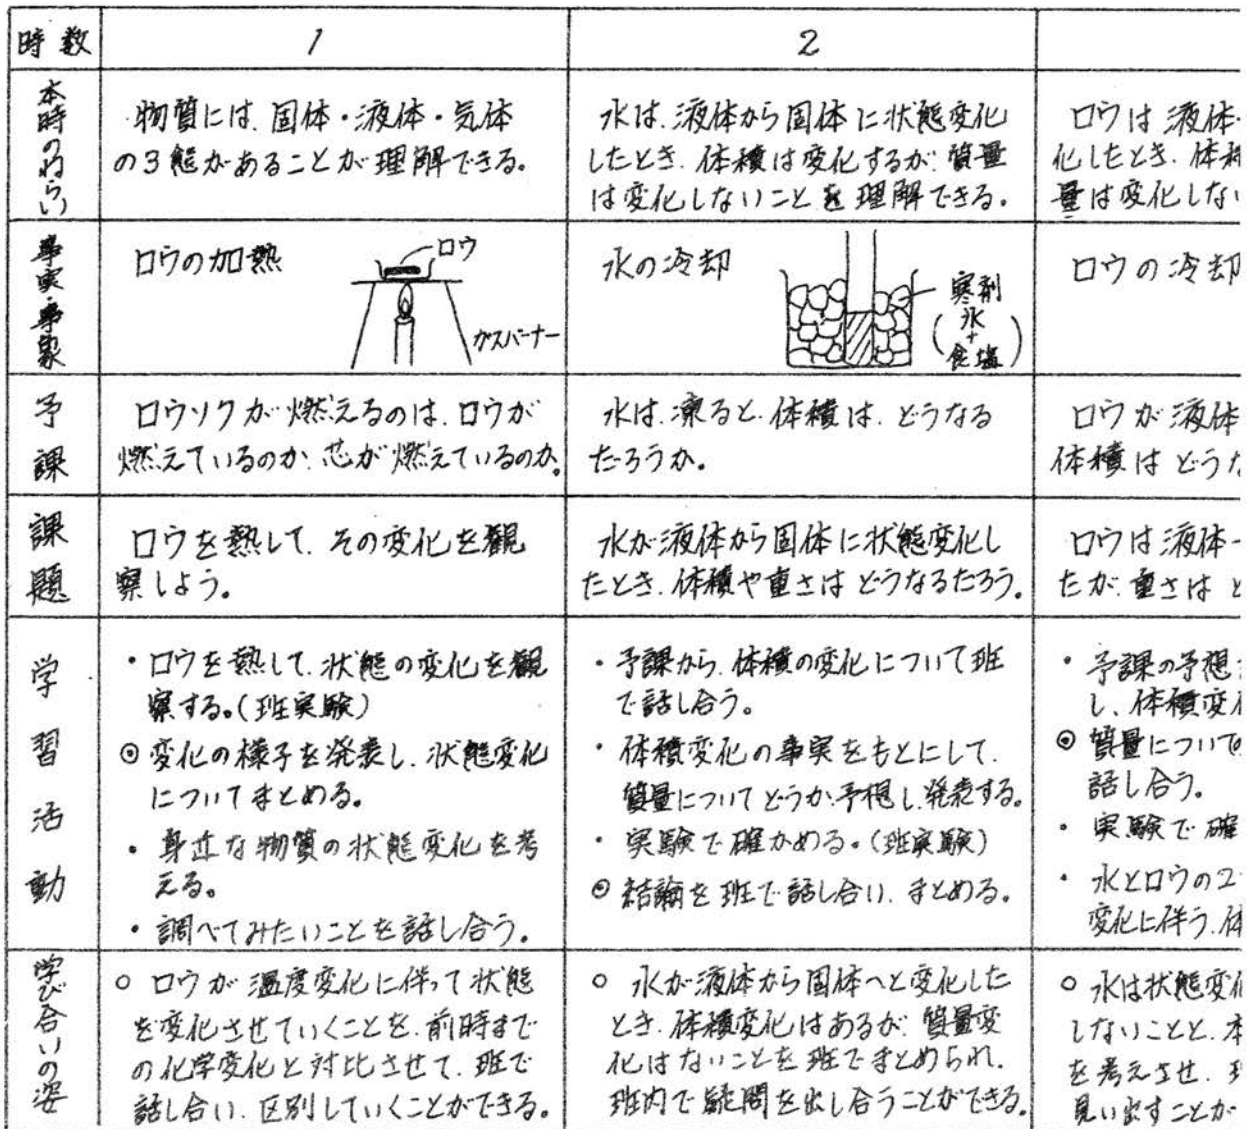 時数
1
2
本時のねらい
物質には、固体・液体・気体
の3態があることが理解できる。
水は、液体から固体に状態変化
したとき、体積は変化するが、質量
は変化しないことを理解できる。
ロウは液体
化したとき、体積
量は変化しない
事実・事象
ロウの加熱
ロウ
ガスバーナー
水の冷却
寒剤
(氷
+
食塩)
ロウの冷却
予課
ロウソクが燃えるのは、ロウが
燃えているのか、芯が燃えているのか。
水は、凍ると、体積は、どうなる
だろうか。
ロウが液体
体積はどうな
課題
ロウを熱して、その変化を観
察しよう。
水が液体から固体に状態変化し
たとき、体積や重さはどうなるだろう。
ロウは液体
たが、重さはと
学習活動
・ロウを熱して、状態の変化を観
察する。(班実験)
◎変化の様子を発表し、状態変化
についてまとめる。
・身近な物質の状態変化を考
える。
・調べてみたいことを話し合う。
・予課から、体積の変化について班
で話し合う。
・体積変化の事実をもとにして、
質量についてどうか予想し、発表する。
・実験で確かめる。(班実験)
◎結論を班で話し合い、まとめる。
・予課の予想
し、体積変化
◎質量について
話し合う。
・実験で確
・水とロウの2
変化に伴う、体
学び合いの姿
○ロウが温度変化に伴って状態
を変化させていくことを、前時まで
の化学変化と対比させて、班で
話し合い、区別していくことができる。
○水が液体から固体へと変化した
とき、体積変化はあるが、質量変
化はないことを班でまとめられ、
班内で疑問を出し合うことができる。
○水は状態変化
しないことと、本
を考えさせ、
見い出すことが